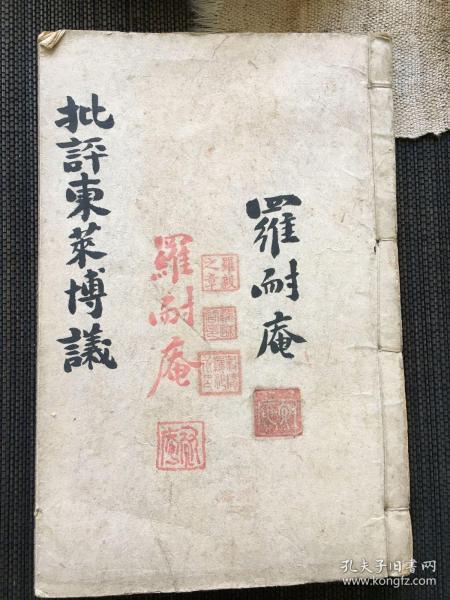 批評東萊博議
羅耐庵
羅耐庵
羅毅
之章
孔夫子旧书网
www.kongfz.com